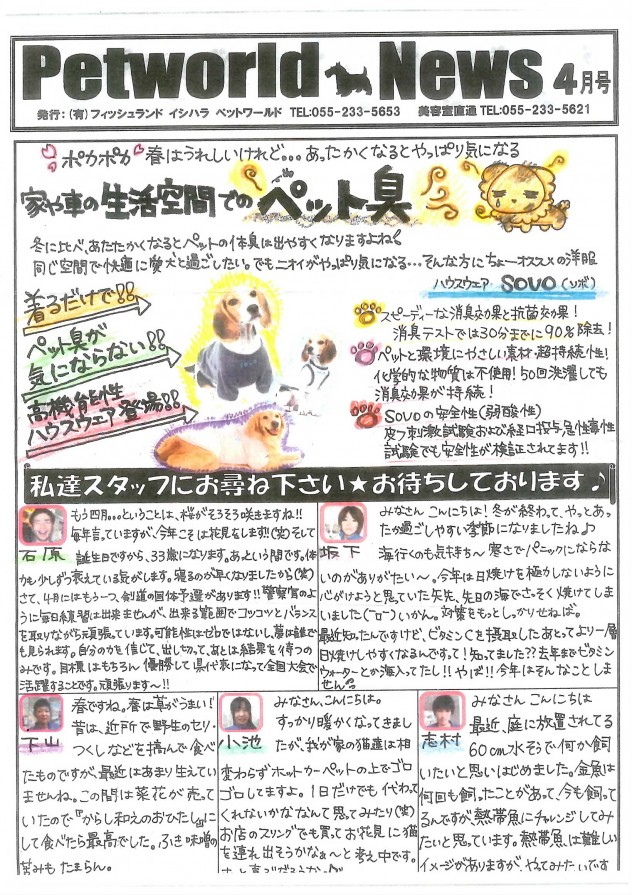 Petworld News 4月号
発行：(有)フィッシュランド イシハラ ペットワールド TEL:055-233-5653 美容室直通 TEL:055-233-5621
ポカポカ 春はうれしいけれど... あったかくなるとやっぱり気になる
家や車の生活空間でのペット臭
冬に比べ、あたたかくなるとペットの体臭は出やすくなりますよね!
同じ空間で快適に愛犬と過ごしたい。でもニオイがやっぱり気になる...そんな方にちょーオススメの洋服
ハウスウェア SOVO (ソボ)
着るだけで!!
ペット臭が
気にならない!!
高機能性
ハウスウェア登場!!
スピーディーな消臭効果と抗菌効果!
消臭テストでは30分までに90%除去!
ペットと環境にやさしい素材、超持続性!
化学的な物質は不使用! 50回洗濯しても
消臭効果が持続!
SOVOの安全性(弱酸性)
皮フ刺激試験および経口投与急性毒性
試験でも安全性が検証されてます!!
私達スタッフにお尋ね下さい★お待ちしております♪
石原
もう四月...ということは、桜がそろそろ咲きますね!!
毎年言っていますが、今年こそは花見をします!!(笑)そして
誕生日ですから、33歳になります。あっという間です。体
力も少しずつ衰えている気がします。寝るのが早くなりましたから(笑)
さて、4月にはもう一つ、剣道の国体予選があります!! 警察官のよ
うに毎日練習は出来ませんが、出来る範囲でコツコツとバランス
を取りながら頑張っています。可能性はゼロではないし、夢は誰で
も見られます。自分の力を信じて、出し切って、あとは結果を待つの
みです。目標はもちろん 優勝して県代表になって全国大会で
活躍することです。頑張ります〜!!
坂下
みなさん こんにちは! 冬が終わって、やっとあっ
たか過ごしやすい季節になりましたね♪
海行くのも気持ち〜 寒さでパニックにならな
いのがありがたい〜。今年は日焼けを極力しないように
心がけようと思っていた矢先、先日の海でさっそく焼けてしま
いました いかん。対策をもっとしっかりせねば。
最近知ったんですけど、ビタミンCを摂取したあとってより一層
日焼けしやすくなるんですって! 知ってました?? 去年までビタミン
ウォーターとか海入ってたし!! やば!! 今年はそんなことしま
せんっ
下山
春ですね。春は草がうまい!
昔は、近所で野生のセリ・
つくしなどを摘んで食べ
たものですが、最近はあまり生えてい
ませんね。この間は菜花が売って
いたので『からし和えのおひたし』に
して食べたら最高でした。ふき味噌の
苦みも たまらん。
小池
みなさん、こんにちは。
すっかり暖かくなってきまし
たが、我が家の猫達は相
変わらずホットカーペットの上でゴロ
ゴロしてますよ。1日だけでも代わって
くれないかななんて思ってみたり(笑)
お店のスリングでも買ってお花見に猫
を連れ出そうかなぁ〜と考え中です。
志村
みなさん こんにちは
最近、庭に放置されてる
60cm水そうで何か飼
いたいと思いはじめました。金魚は
何回も飼ったことがあって、今も飼って
るんですが、熱帯魚にチャレンジしてみ
たいと思っています。熱帯魚は難しい
イメージがありますが、やってみたいです